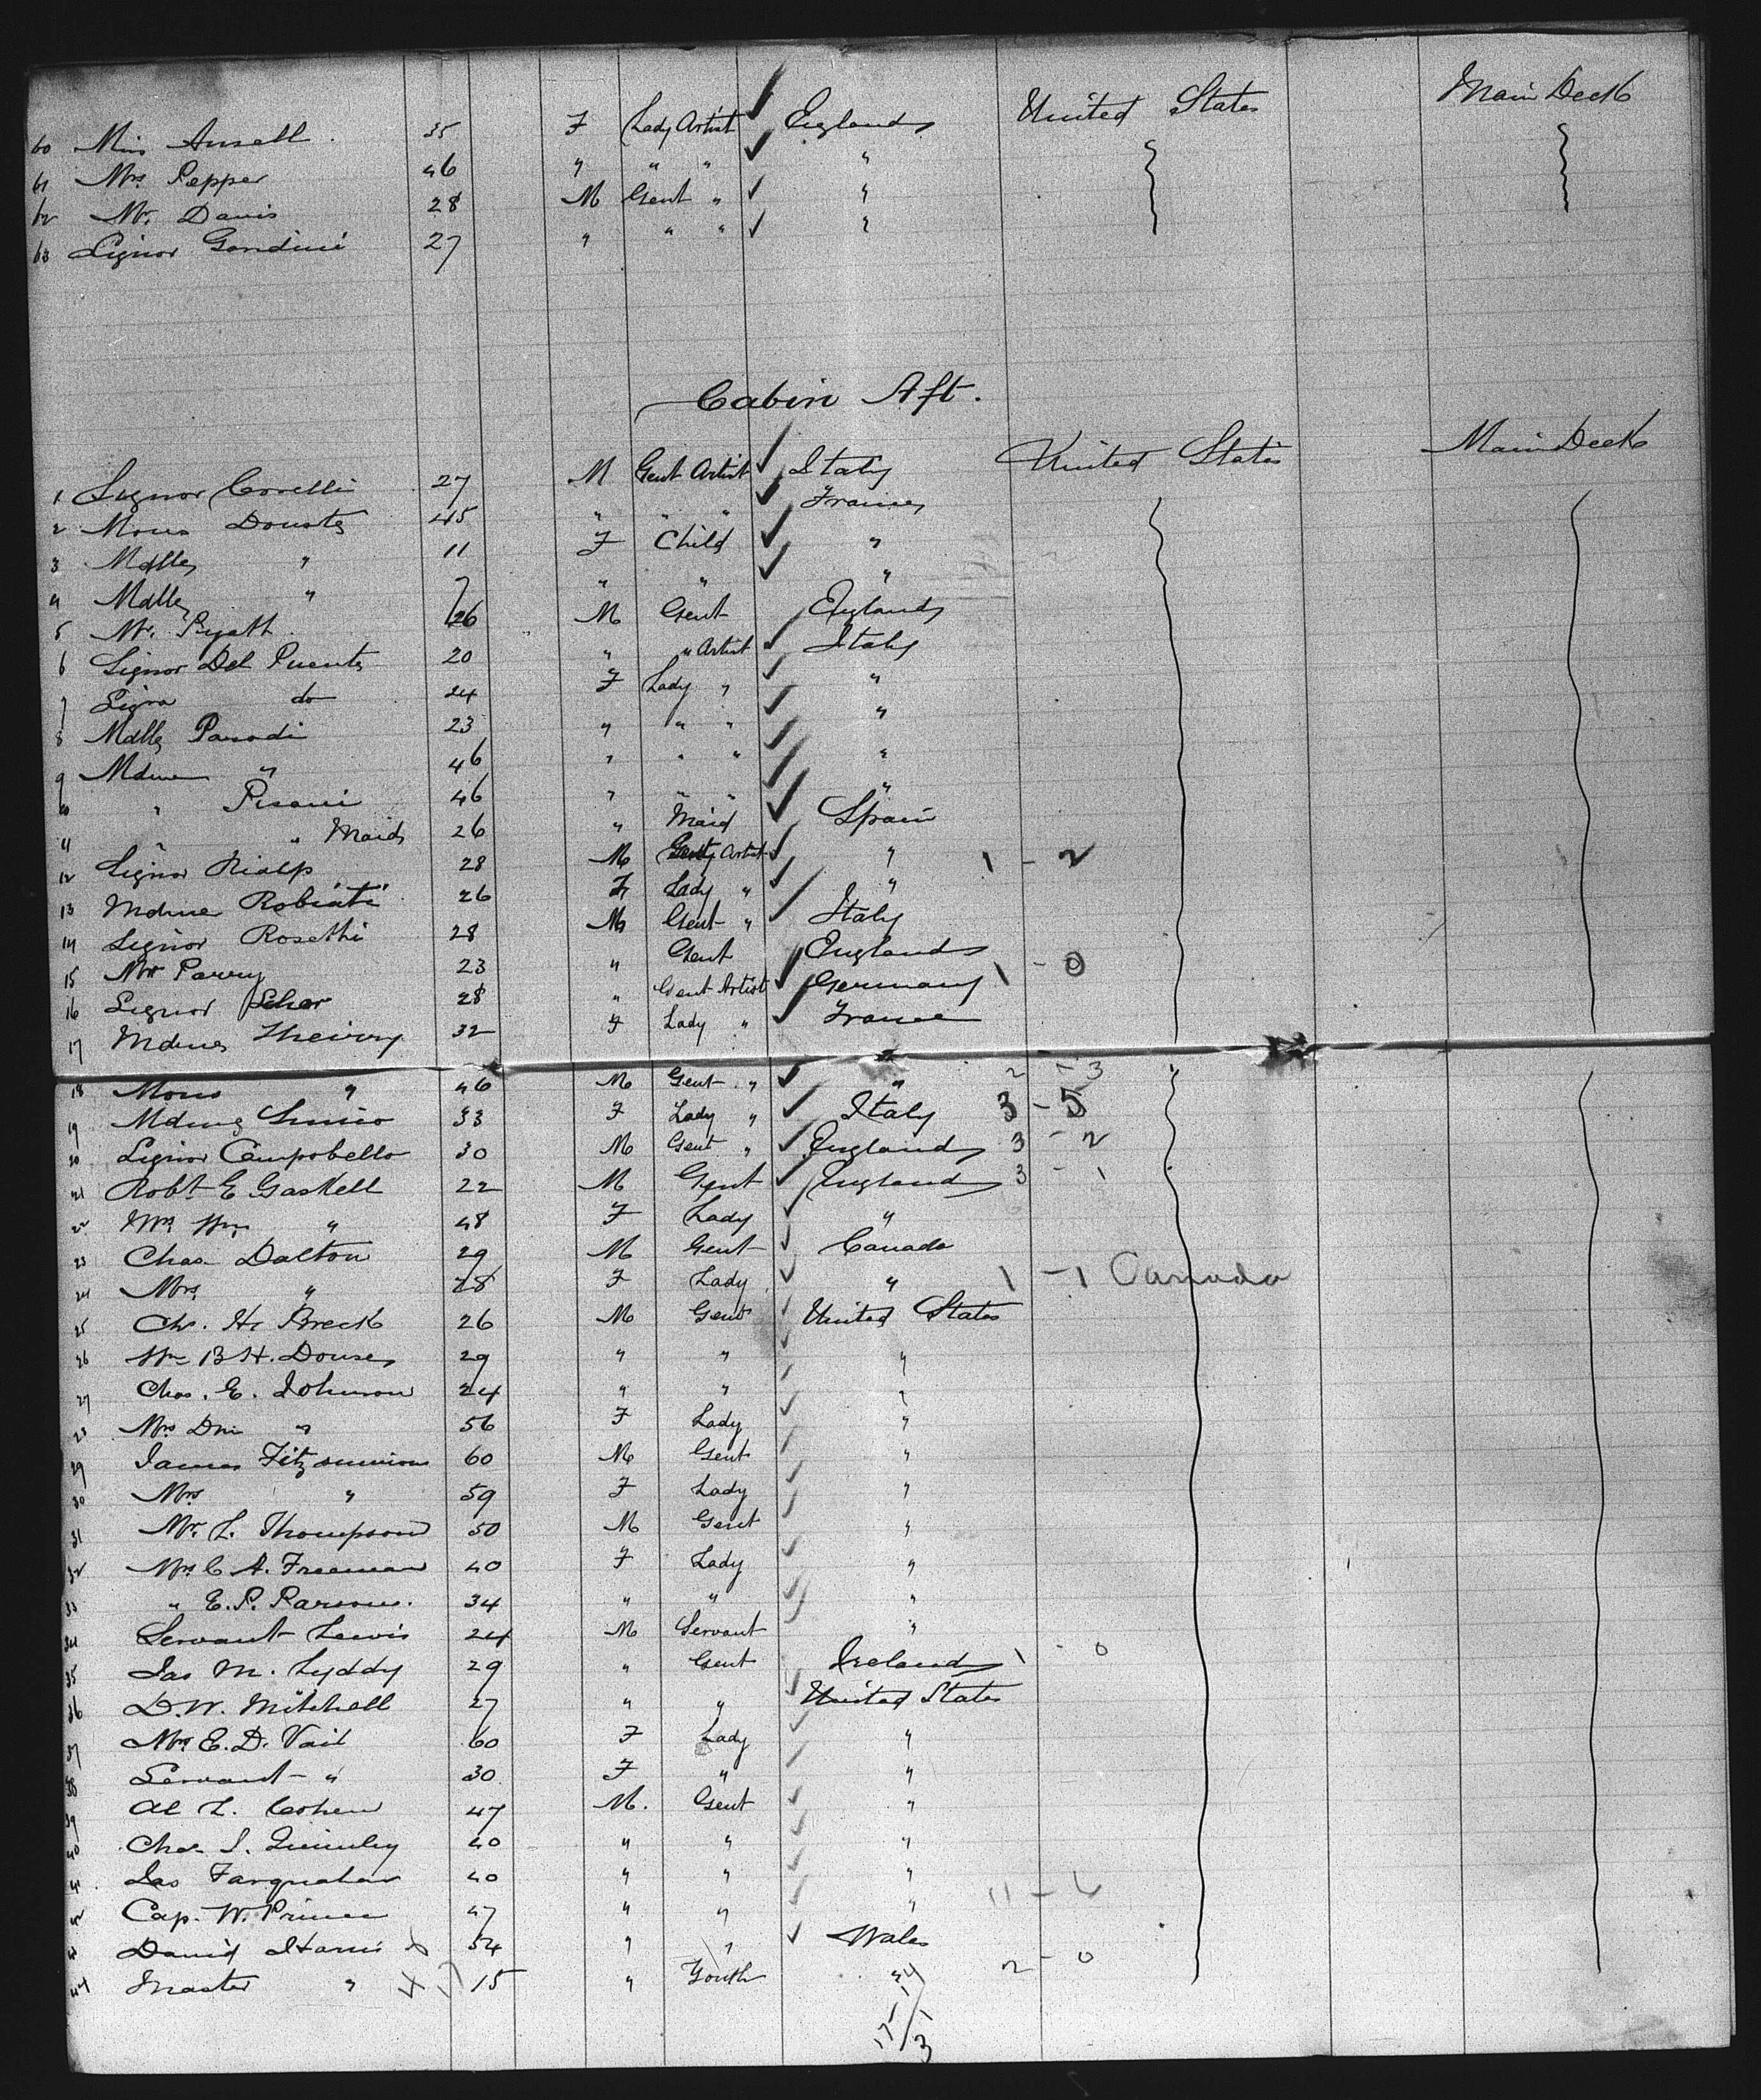 60 Miss Ansell 35 F Lady Artist ✓ England United States Main Deck
61 Mrs Pepper 46 " " " ✓ "
62 Mr. Davis 28 M Gent " ✓ "
63 Signor Gondini 27 " " " ✓ "
Cabin Aft.
1 Signor Corelli 27 M Gent Artist ✓ Italy United States Main Deck
2 Mons Douste 45 " " " ✓ France
3 Mdlle " 11 F Child ✓ "
4 Mdlle " 7 " " ✓ "
5 Mr. Pyatt 26 M Gent ✓ England
6 Signor Del Puente 20 " " Artist ✓ Italy
7 Signa do 24 F Lady " ✓ "
8 Mdlle Parodi 23 " " " ✓ "
9 Mdme " 46 " " " ✓ "
10 " Pisani 46 " " " ✓ "
11 " " Maid 26 " Maid ✓ Spain
12 Signor Rialp 28 M Artist ✓ " 1 - 2
13 Mdme Robiati 26 F Lady " ✓ "
14 Signor Rosethi 28 M Gent " ✓ Italy
15 Mr Parry 23 " Gent ✓ England 1 - 0
16 Signor 28 " Gent Artist ✓ Germany
17 Mdme Theirry 32 F Lady " ✓ France
18 Mons " 46 M Gent " ✓ " 2 - 3
19 Mdme Sinico 33 F Lady " ✓ Italy 3 - 5
20 Signor Campobello 30 M Gent " ✓ England 3 - 2
21 Robt E Gaskell 22 M Gent ✓ England 3 - 1
22 Mrs Wm " 48 F Lady ✓ "
23 Chas Dalton 29 M Gent ✓ Canada
24 Mrs " 28 F Lady ✓ " 1 - 1 Canada
25 Chs. H. Breck 26 M Gent ✓ United States
26 Wm B H. Douse 29 " " ✓ "
27 Chas. E. Johnson 24 " " ✓ "
28 Mrs " 56 F Lady ✓ "
29 James Fitzsimmons 60 M Gent ✓ "
30 Mrs " 59 F Lady ✓ "
31 Mr. L. Thompson 50 M Gent ✓ "
32 Mrs C A. Freeman 40 F Lady ✓ "
33 " E. P. Parsons. 34 " " ✓ "
34 Servant Lewis 24 M Servant "
35 Jas M. Lyddy 29 " Gent Ireland 1 - 0
36 D. W. Mitchell 27 " " ✓ United States
37 Mrs E. D. Vail 60 F Lady ✓ "
38 Servant " 30 F " ✓ "
39 Al L. Cohen 47 M. Gent ✓ "
40 Chas. S. Quimby 40 " " ✓ "
41 Jas Farquahar 40 " " ✓ "
42 Cap. W. Prince 47 " " ✓ " 11 - 6
43 David Harris x 54 " " ✓ Wales
44 Master " x 15 " Youth " 2 - 0